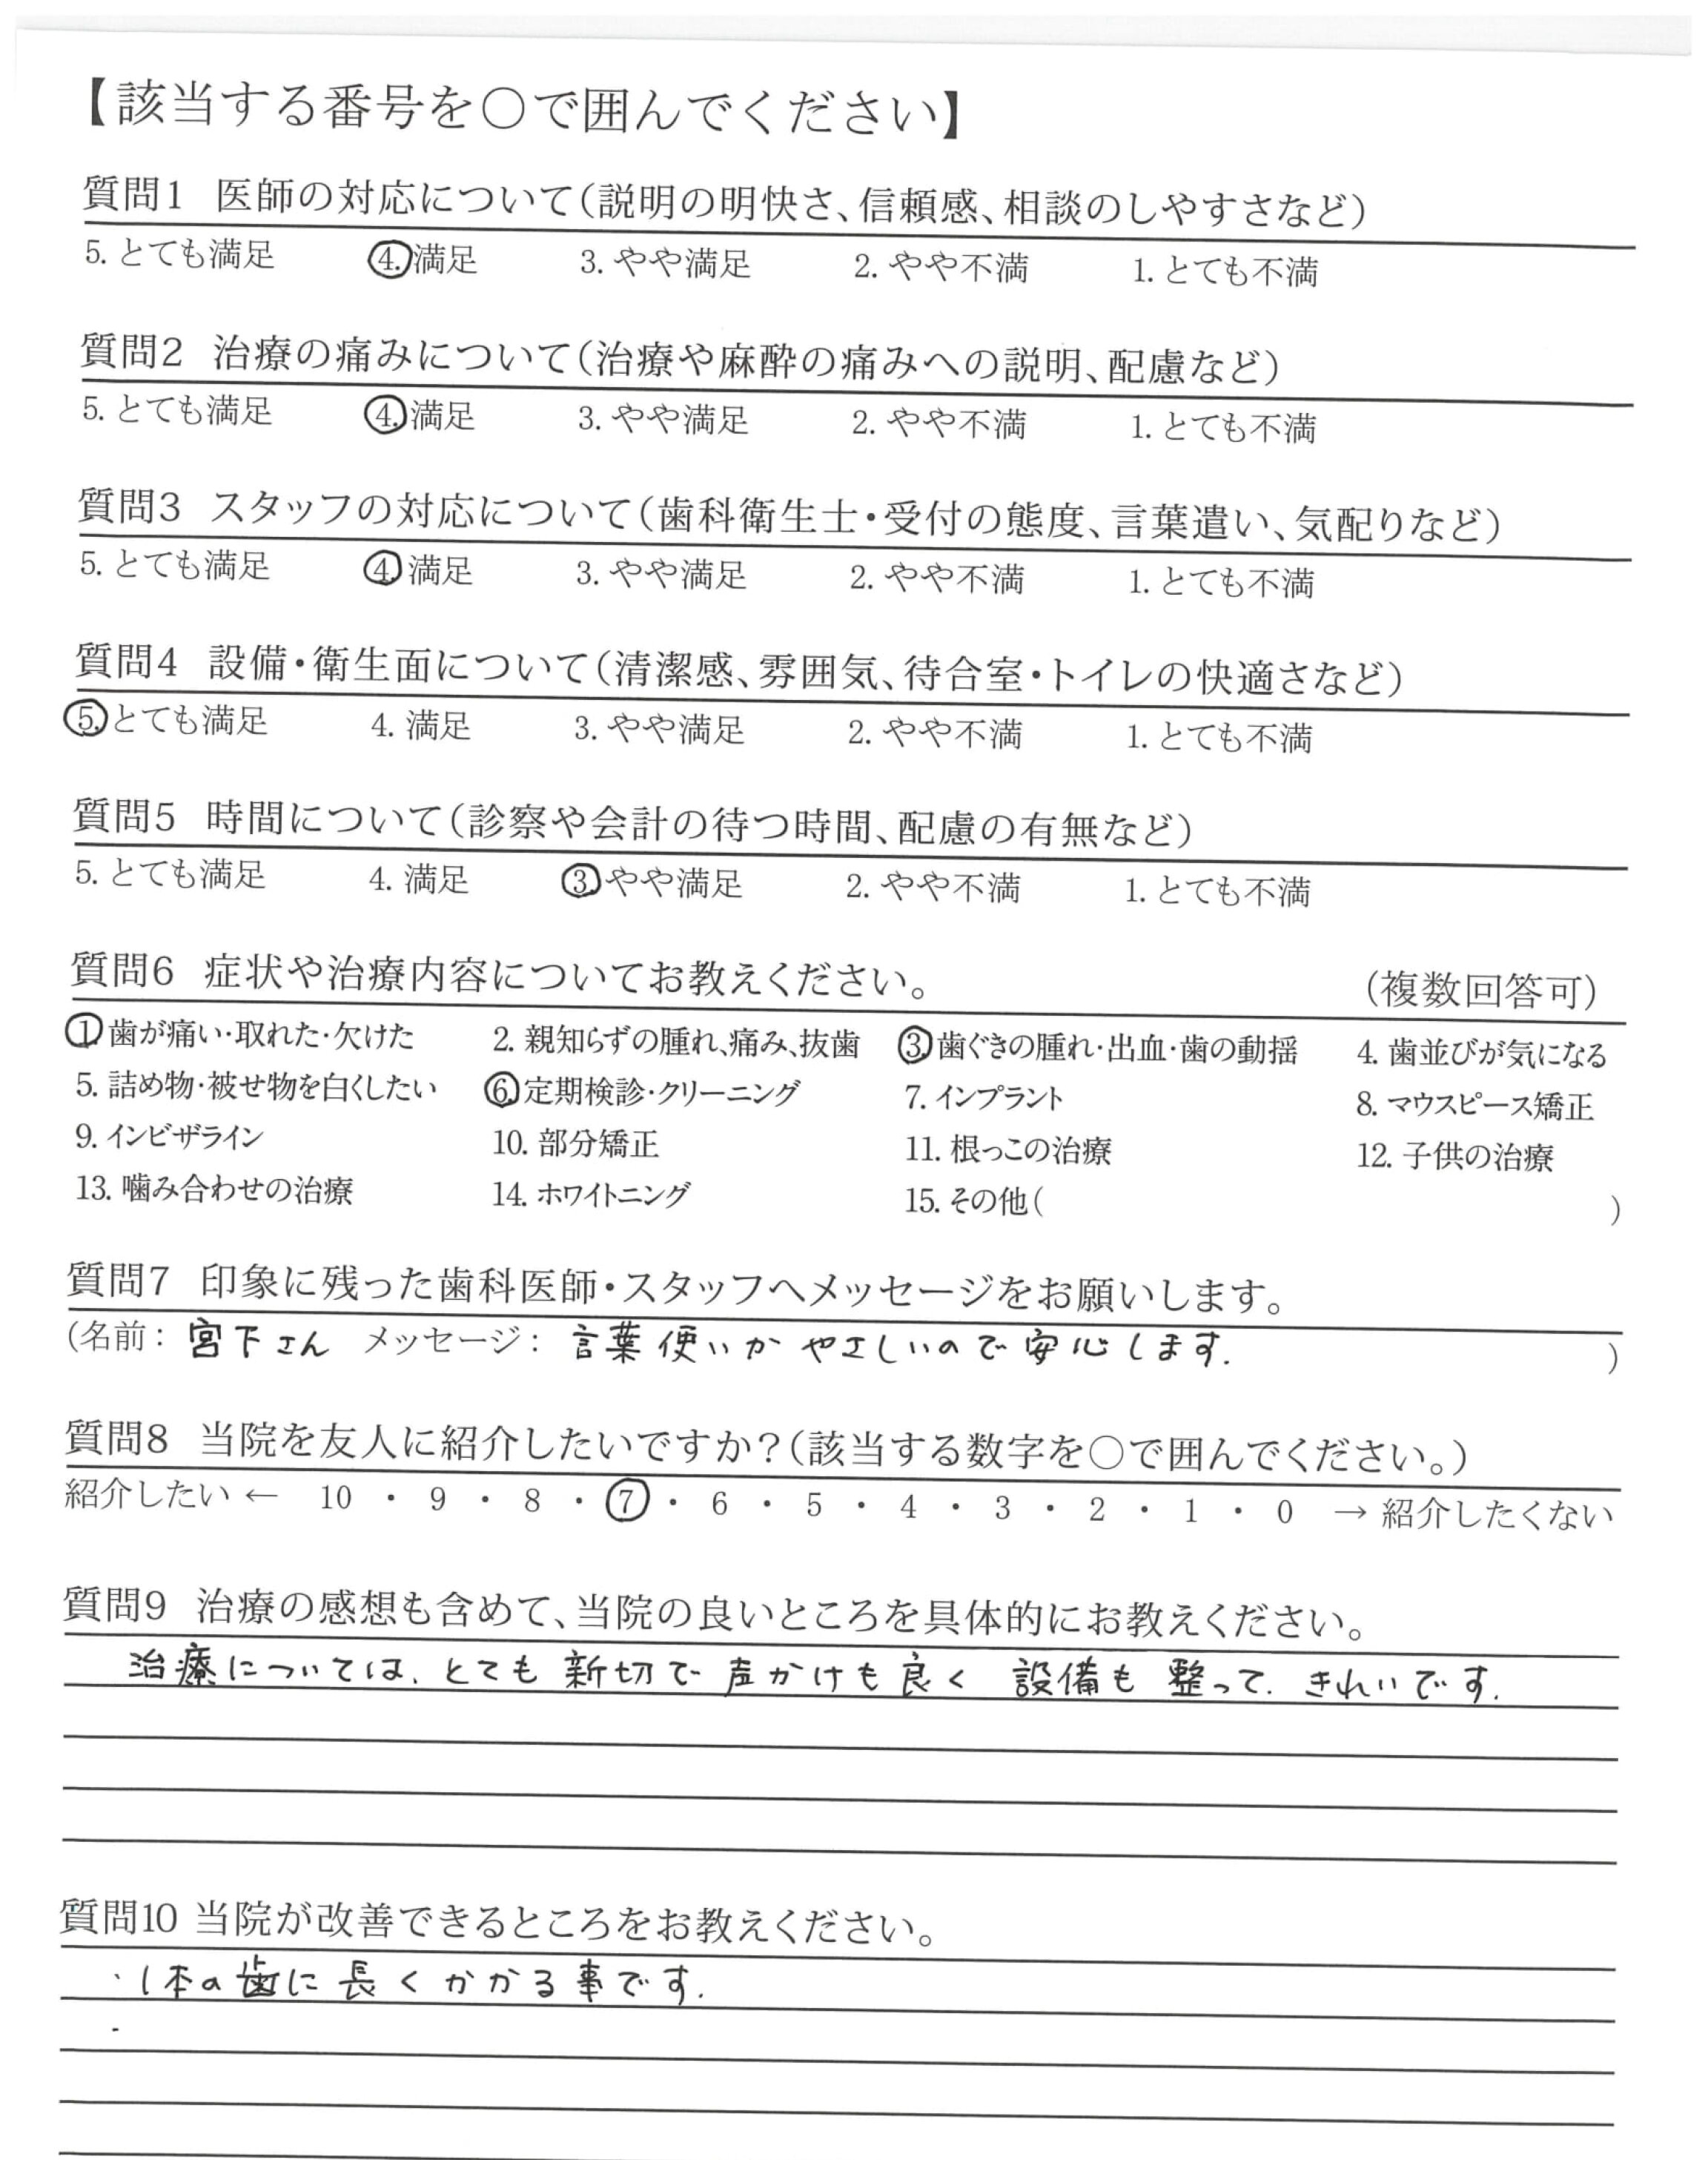 【該当する番号を〇で囲んでください】
質問1 医師の対応について(説明の明快さ、信頼感、相談のしやすさなど)
5. とても満足 4. 満足 3. やや満足 2. やや不満 1. とても不満
質問2 治療の痛みについて(治療や麻酔の痛みへの説明、配慮など)
5. とても満足 4. 満足 3. やや満足 2. やや不満 1. とても不満
質問3 スタッフの対応について(歯科衛生士・受付の態度、言葉遣い、気配りなど)
5. とても満足 4. 満足 3. やや満足 2. やや不満 1. とても不満
質問4 設備・衛生面について(清潔感、雰囲気、待合室・トイレの快適さなど)
5. とても満足 4. 満足 3. やや満足 2. やや不満 1. とても不満
質問5 時間について(診察や会計の待つ時間、配慮の有無など)
5. とても満足 4. 満足 3. やや満足 2. やや不満 1. とても不満
質問6 症状や治療内容についてお教えください。 (複数回答可)
1. 歯が痛い・取れた・欠けた 2. 親知らずの腫れ、痛み、抜歯 3. 歯ぐきの腫れ・出血・歯の動揺 4. 歯並びが気になる
5. 詰め物・被せ物を白くしたい 6. 定期検診・クリーニング 7. インプラント 8. マウスピース矯正
9. インビザライン 10. 部分矯正 11. 根っこの治療 12. 子供の治療
13. 噛み合わせの治療 14. ホワイトニング 15. その他( )
質問7 印象に残った歯科医師・スタッフへメッセージをお願いします。
(名前: 宮下さん メッセージ: 言葉使いかやさしいので安心します. )
質問8 当院を友人に紹介したいですか?(該当する数字を〇で囲んでください。)
紹介したい ← 10 ・ 9 ・ 8 ・ 7 ・ 6 ・ 5 ・ 4 ・ 3 ・ 2 ・ 1 ・ 0 → 紹介したくない
質問9 治療の感想も含めて、当院の良いところを具体的にお教えください。
治療については、とても新切で声かけも良く 設備も整って、きれいです.
質問10 当院が改善できるところをお教えください。
・1本の歯に長くかかる事です.